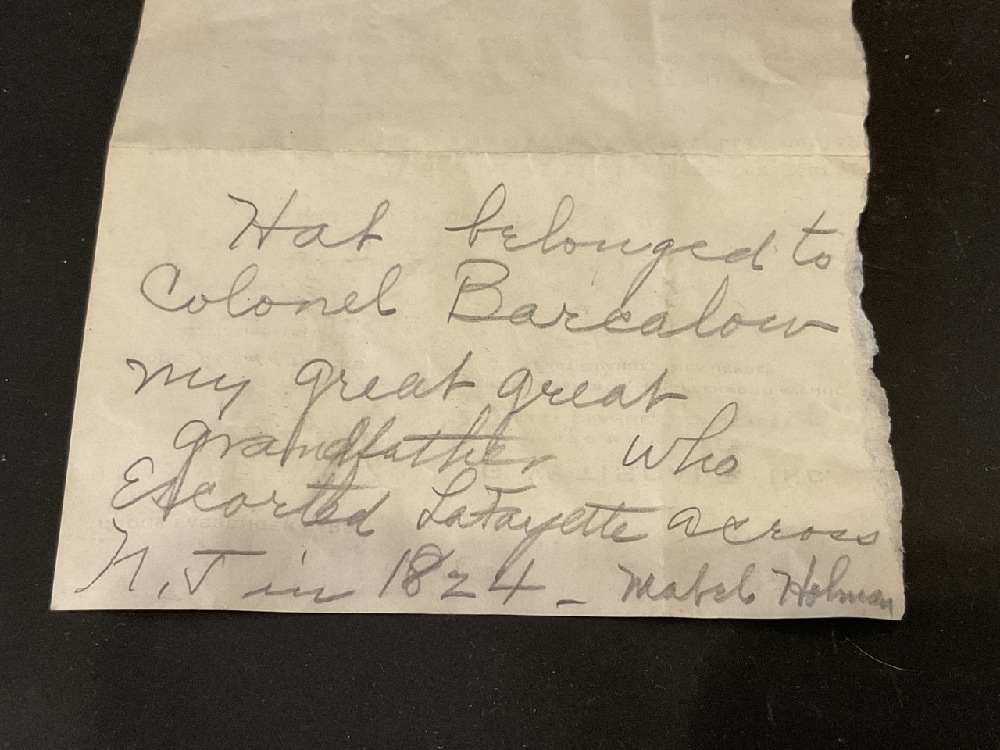 Hat belonged to
Colonel Barcalow
my great great
grandfather who
Escorted LaFayette across
N.J in 1824 - Mabel Holman